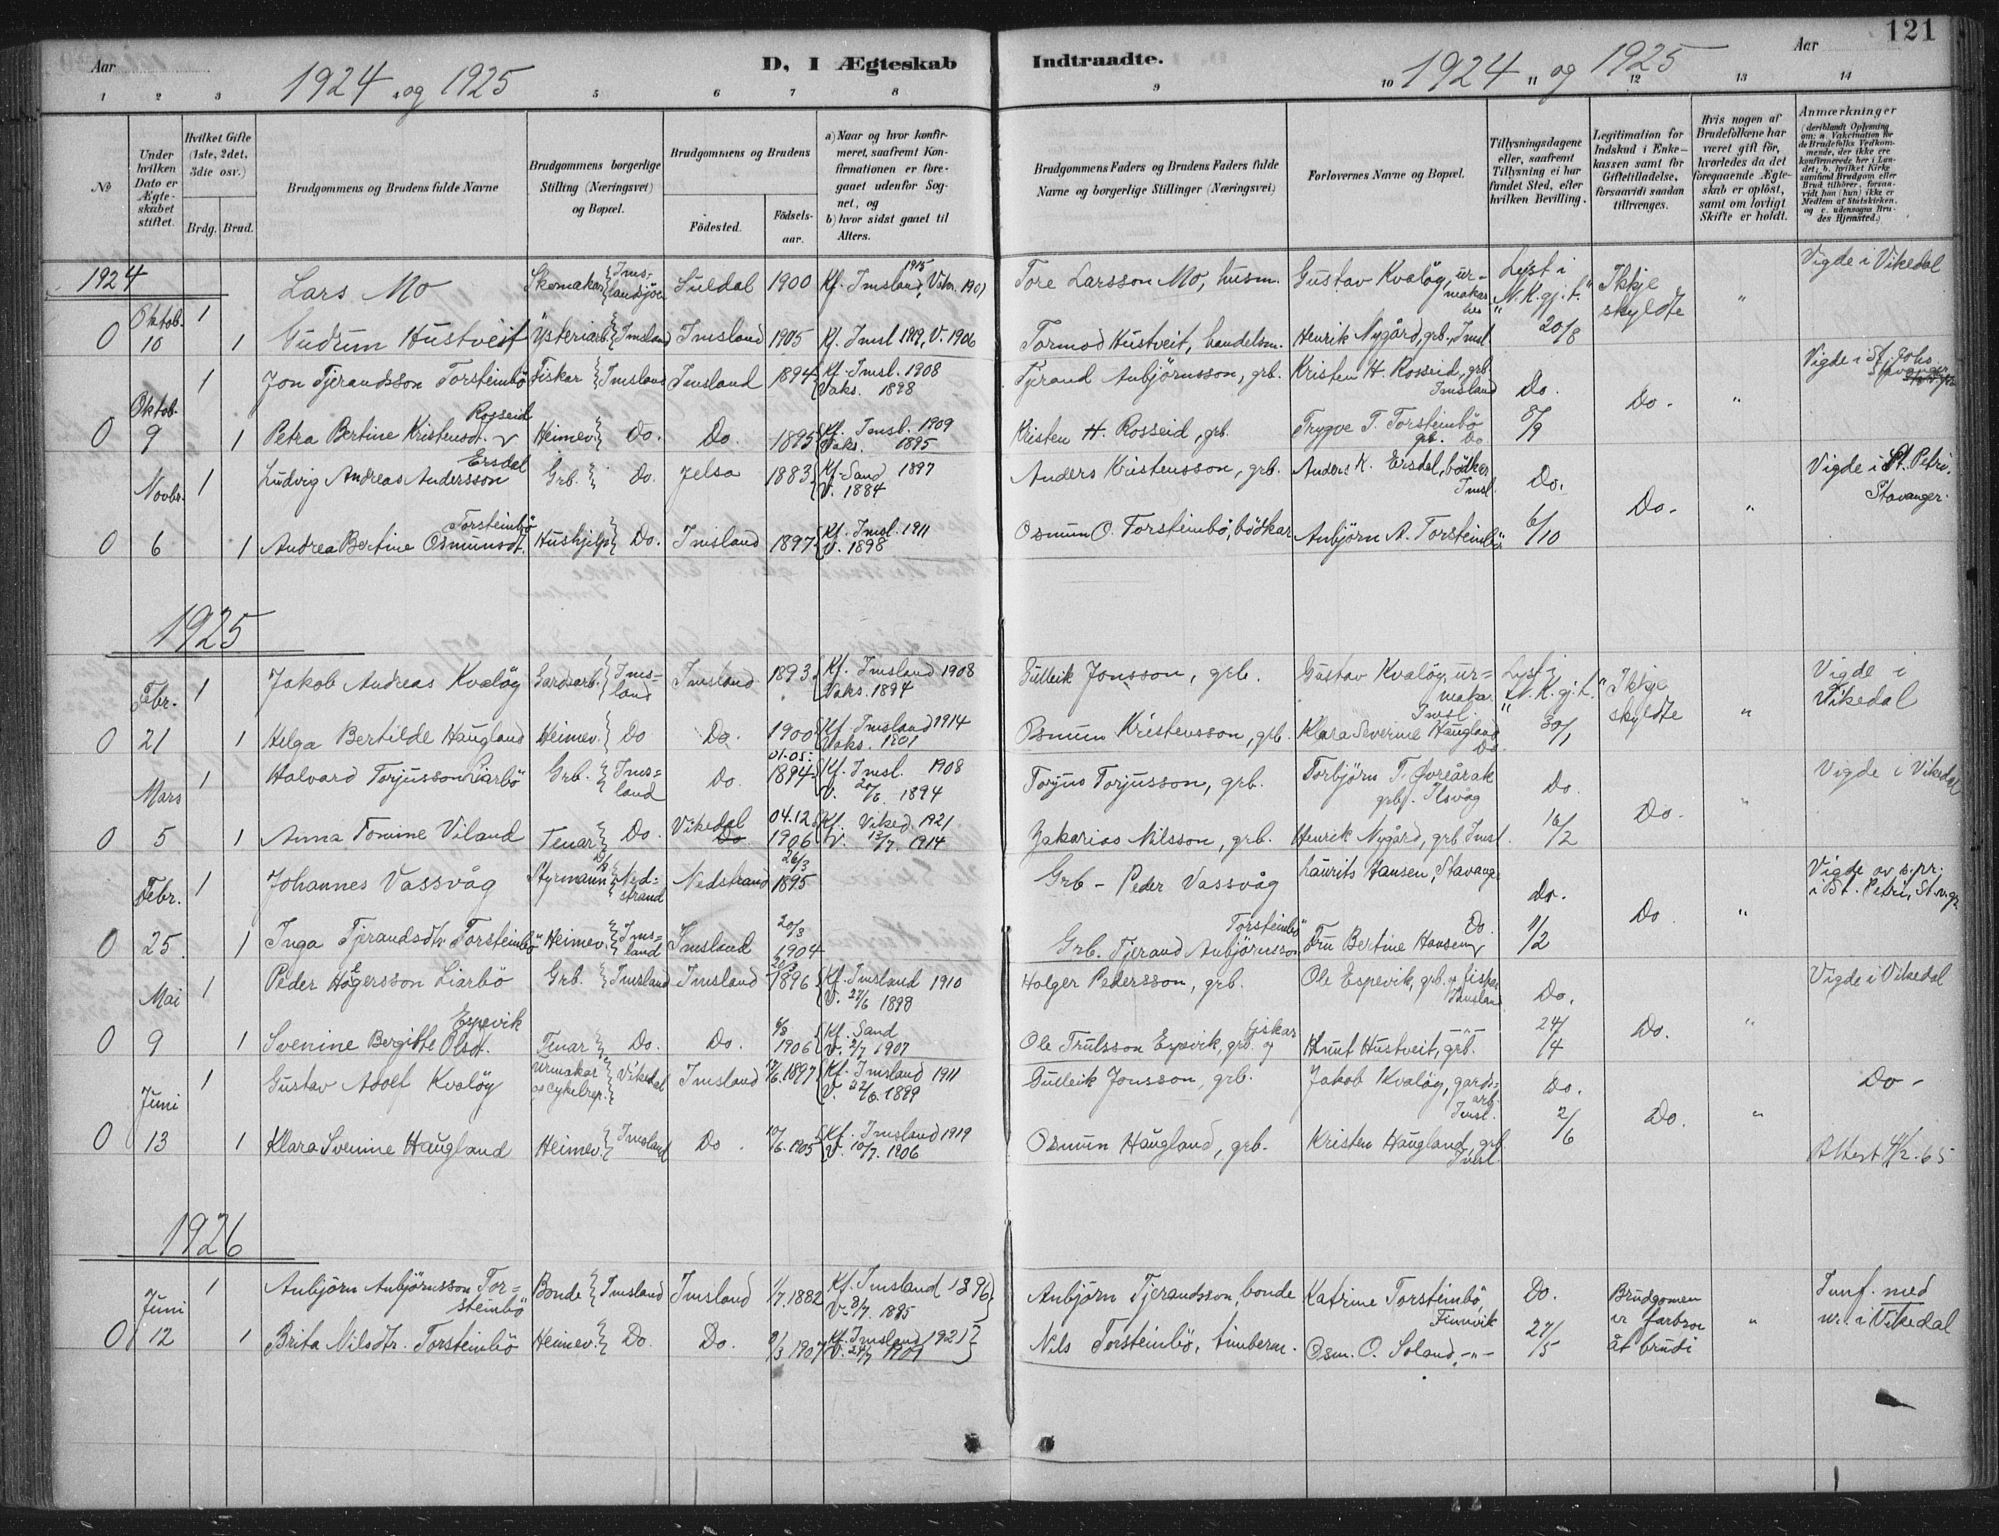 121
Aar
D. I Ægteskab Indtraadte.
Aar
1924 og 1925
1924 og 1925
1 2 3 4 5 6 7 8 9 10 11 12 13 14
No
Under hvilken Dato er Ægteskabet stiftet.
Hvilket Gifte (1ste, 2det, 3die osv.)
Brdg. Brud.
Brudgommens og Brudens fulde Navne
Brudgommens borgerlige Stilling (Næringsvei) og Bopæl.
Brudgommens og Brudens
Fødested.
Fødselsaar.
a) Naar og hvor konfirmeret, saafremt Konfirmationen er foregaaet udenfor Sognet, og
b) hvor sidst gaaet til Alters.
Brudgommens Faders og Brudens Faders fulde Navne og borgerlige Stillinger (Næringsvei)
Forlovernes Navne og Bopæl.
Tillysningsdagene eller, saafremt Tillysning ei har fundet Sted, efter hvilken Bevilling.
Legitimation for Indskud i Enkekassen samt for Giftetilladelse, forsaavidt saadan tiltrænges.
Hvis nogen af Brudefolkene har været gift før, hvorledes da det foregaaende Ægteskab er opløst, samt om lovligt Skifte er holdt.
Anmærkninger
1924
Oktob. 1 Lars Mo Skomakar Imslandsjøen Suldal 1900 Kf. Imsland 1915, Vaks. 1901 Tore Larsson Mo, husm. Gustav Kvaløy, urmakar Lyst i N.K.gj.t. Ikkje skyldte " Vigde i Vikedal
0 10 1 Gudrun Hustveit Ysteriarb. Imsland Imsland 1905 Kf. Imsl 1919, V. 1906 Tormod Hustveit, handelsm. Henrik Nygård, grb., Imsl. 20/8
Oktob. 1 Jon Tjerandsson Torsteinbö Fiskar Imsland Imsland 1894 Kf. Imsl. 1908 Vaks. 1898 Tjerand Anbjörnsson, grb. Kristen H. Rosseid, grb. Imsland Do. Do. " Vigde i St. Johs. Stavanger
0 9 1 Petra Bertine Kristensdt. Rosseid Heimev. Do. Do. 1895 Kf. Imsl. 1909 Vaks. 1895 Kristen H. Rosseid, grb. Trygve T. Torsteinbö grb. Do 8/9
Novbr. 1 Ludvig Andreas Andersson Ersdal Grb. Do. Jelsa 1883 Kf. Sand 1897 V. 1884 Anders Kristensson, grb. Anders K. Ersdal, bödkar Imsl. Do. Do. " Vigde i St. Petri, Stavanger.
0 6 1 Andrea Bertine Osmundsdt. Torsteinbö Hushjelp Do. Imsland 1897 Kf. Imsl. 1911 V. 1898 Osmun O. Torsteinbö, bödkar Anbjörn A. Torsteinbö 6/10
1925
Febr. 1 Jakob Andreas Kvaløy Gardsarb. Imsland Imsland 1893 Kf. Imsland 1908 Vaks. 1894 Gulleik Jonsson, grb. Gustav Kvaløy, urmakar Imsl. Lyst i N.K.gj.t. Ikkje skyldte " Vigde i Vikedal
0 21 1 Helga Bertilde Haugland Heimev. Do Do. 1900 Kf. Imsland 1914 Vaks. 1901 Osmun Kristensson, grb. Klara Severine Haugland Do. 30/1
Mars 1 Halvard Torjusson Liarbö Grb. Imsland Do. 01-05: 1894 Kf. Imsl. 1908 V. 20/6 1894 Torjus Torjusson, grb. Torbjörn T. Øvreåråk grb. Ilsvåg Do. Do. " Vigde i Vikedal
0 5 1 Anna Tomine Viland Tenar Do. Vikedal Do. 04.12 1906 Kf. Viked 1921 V. 13/7. 1914 Zakarias Nilsson, grb. Henrik Nygård, grb Imsl. 16/2
Febr. 1 Johannes Vassvåg Styrmann D/S Nedstrand Nedstrand 26/3 1895 Grb - Peder Vassvåg Laurits Hansen, Stavange Do. Do. " Vigde av s.pr. i St. Petri, St.vgr.
0 25 1 Inga Tjerandsdtr Torsteinbö Heimev. Imsland Imsland 20/3 1904 Grb. Tjerand Anbjörnsson Torsteinbö Fru Bertine Hansen Do. 9/2
Mai 1 Peder Hogersson Liarbö Grb. Imsland Imsland 1896 Kf. Imsland 1910 V. 27/6 1898 Holger Pedersson, grb. Ole Espevik, grb. og fiskar Imsland Do. Do. " Vigde i Vikedal
0 9 1 Svenine Bergitte Olsdt. Espevik Tenar Do. Do. 6/3 1906 Kf. Sand V. 2/7 1907 Ole Trulsson Espevik, grb. og fiskar Knut Hustveit, grb. 24/4
Juni 1 Gustav Adolf Kvaløy Urmakar og cykelrep. Vikedal Imsland 1897 Kf. Imsland 1911 V. 22/6. 1899 Gulleik Jonsson, grb. Jakob Kvaløy, gardsarb. Imsl. Do. Do. " Do -
0 13 1 Klara Svenine Haugland Heimev. Imsland Do. 1905 Kf. Imsland 1919 V. 10/7. 1906 Osmun Haugland, grb. Kristen Haugland, grb Imsl. 2/6 Attest 4/2.65
1926
Juni 1 Anbjörn Anbjörnsson Torsteinbö Bonde Imsland Imsland 1/7. 1882 Kf. Imsland 1896 V. 8/7. 1885 Anbjörn Tjerandsson, bonde Katrine Torsteinbö, Finnvik Do. Brudgomen er farbror åt brudi " Innf. med nr. i Vikedal
0 12 1 Brita Nilsdtr. Torsteinbö Heimev. Do. Do. 9/3 1907 Kf. Imsland 1921 V. Nils Torsteinbö, timberm. Osm. O. Soland, -"- 27/5